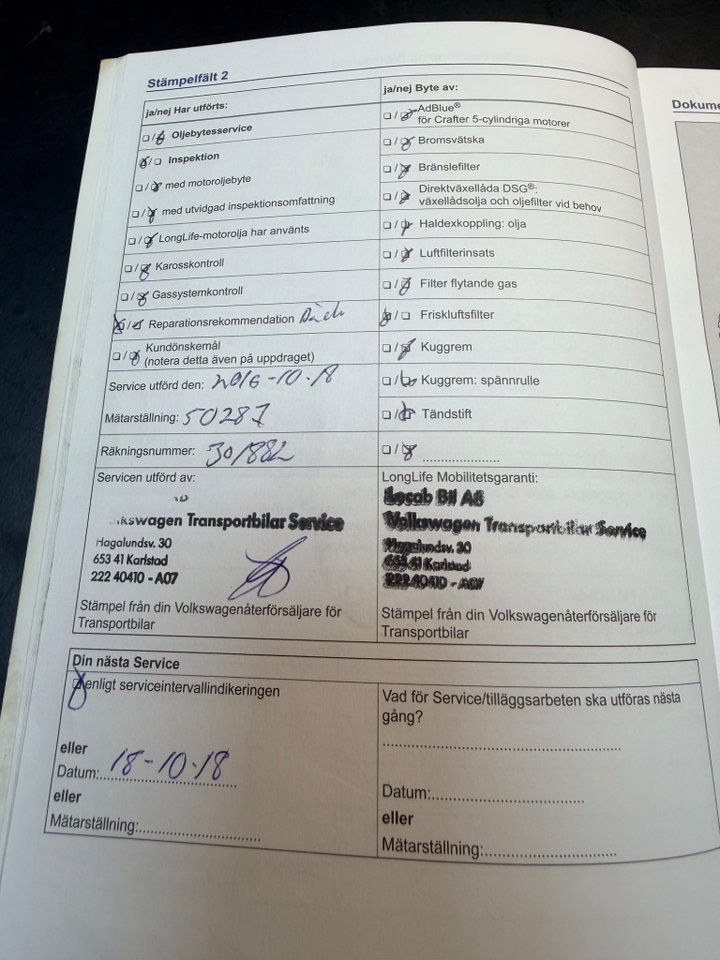 Stämpelfält 2
ja/nej Har utförts:
☐/☒ Oljebytesservice
☒/☐ Inspektion
☐/☒ med motoroljebyte
☐/☒ med utvidgad inspektionsomfattning
☐/☒ LongLife-motorolja har använts
☐/☒ Karosskontroll
☐/☒ Gassystemkontroll
☒/☑ Reparationsrekommendation
☐/☒ Kundönskemål
(notera detta även på uppdraget)
Service utförd den: 2016-10-18
Mätarställning: 50287
Räkningsnummer: 301882
Servicen utförd av:
Volkswagen Transportbilar Service
Hagalundsv. 30
653 41 Karlstad
222 40410 - A07
Stämpel från din Volkswagenåterförsäljare för
Transportbilar
ja/nej Byte av:
☐/☒ AdBlue®
för Crafter 5-cylindriga motorer
☐/☒ Bromsvätska
☐/☒ Bränslefilter
☐/☒ Direktväxellåda DSG®:
växellådsolja och oljefilter vid behov
☐/☒ Haldexkoppling: olja
☐/☒ Luftfilterinsats
☐/☒ Filter flytande gas
☒/☐ Friskluftsfilter
☐/☒ Kuggrem
☐/☒ Kuggrem: spännrulle
☐/☒ Tändstift
☐/☒ ......................
LongLife Mobilitetsgaranti:
Locab Bil AB
Volkswagen Transportbilar Service
Hagalundsv. 30
653 41 Karlstad
222 40410 - A07
Stämpel från din Volkswagenåterförsäljare för
Transportbilar
Din nästa Service
☒ enligt serviceintervallindikeringen
eller
Datum: 18-10-18
eller
Mätarställning:..............................
Vad för Service/tilläggsarbeten ska utföras nästa
gång?
............................................................
Datum:......................................
eller
Mätarställning:.................................
Dokume